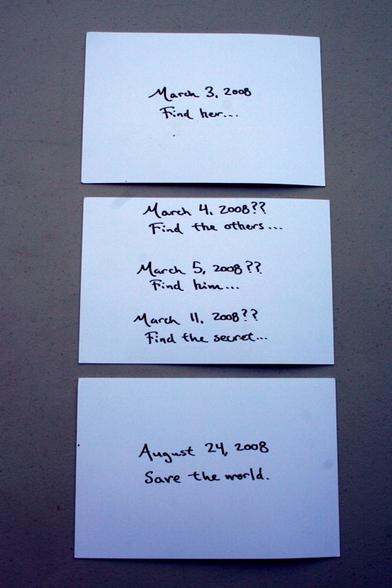 March 3, 2008
Find her...
March 4, 2008??
Find the others...
March 5, 2008??
Find him...
March 11, 2008??
Find the secret...
August 24, 2008
Save the world.